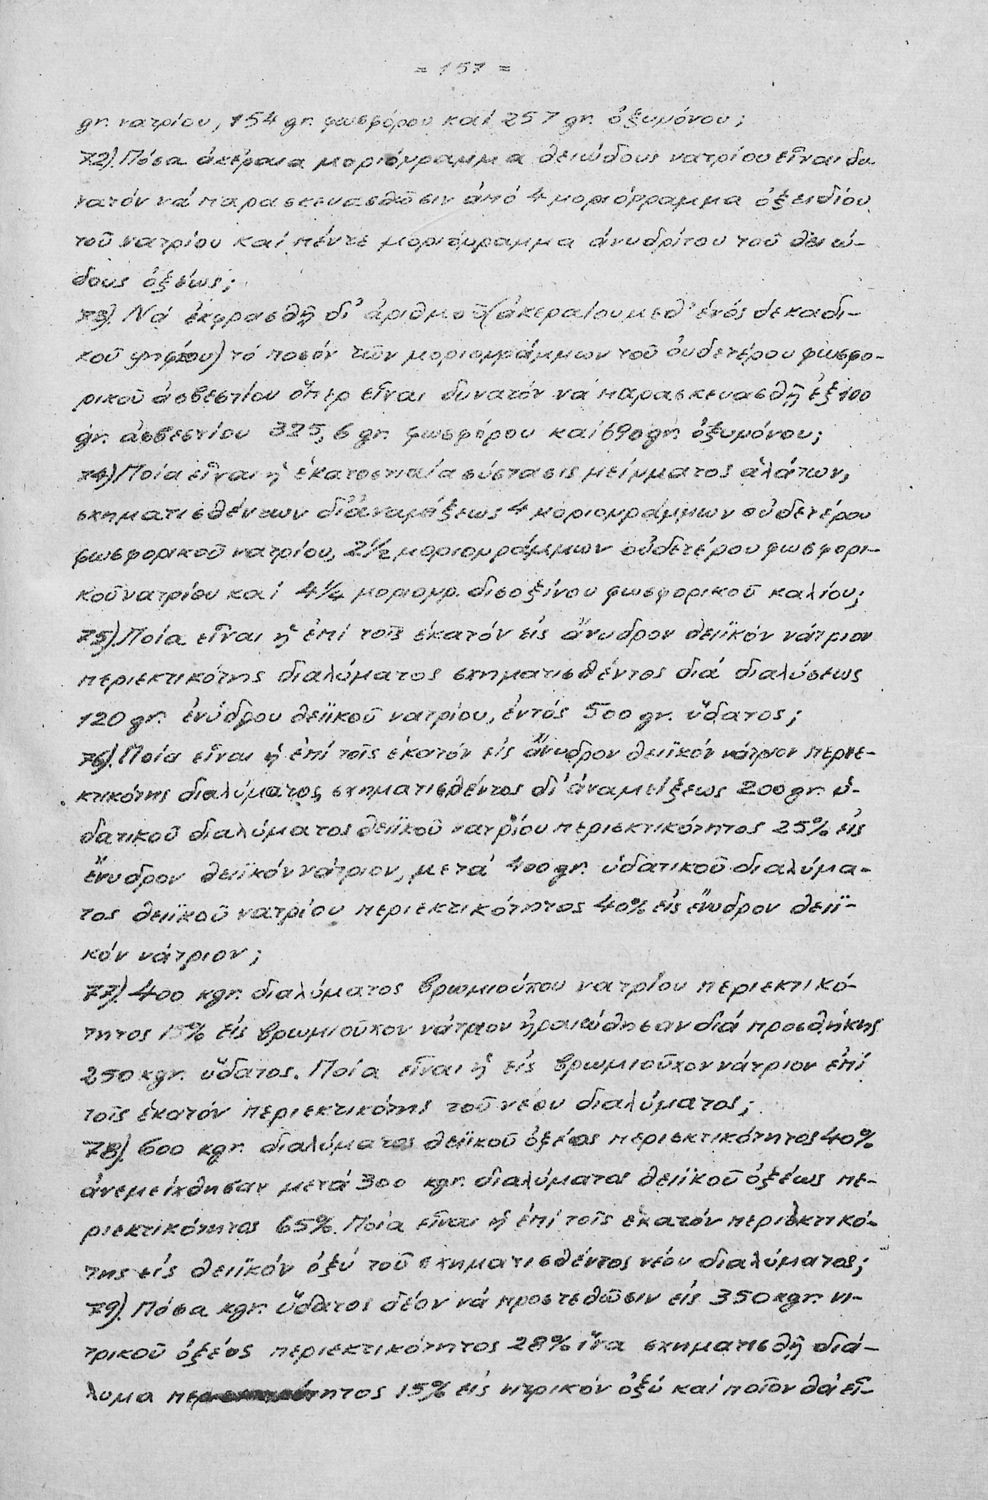 = 157 =
gr. νατρίου, 154 gr. φωσφόρου καί 257 gr. ὀξυγόνου;
72). Πόσα ἀκέραια μοριόγραμμα θειώδους νατρίου εἶναι δυ-
νατόν νά παρασκευασθῶσιν ἀπό 4 μοριόγραμμα ὀξειδίου
τοῦ νατρίου καί πέντε μοριόγραμμα ἀνυδρίτου τοῦ θειώ-
δους ὀξέως;
73). Νά ἐκφρασθῇ δι' ἀριθμοῦ (ἀκεραίου μεθ' ἑνός δεκαδι-
κοῦ ψηφίου) τό ποσόν τῶν μοριογράμμων τοῦ οὐδετέρου φωσφο-
ρικοῦ ἀσβεστίου ὅπερ εἶναι δυνατόν νά παρασκευασθῇ ἐξ 100
gr. ἀσβεστίου 325,6 gr. φωσφόρου καί 690 gr. ὀξυγόνου;
74) Ποία εἶναι ἡ ἑκατοστιαία σύστασις μείγματος ἁλάτων,
σχηματισθέντων δι' ἀναμίξεως 4 μοριογράμμων οὐδετέρου
φωσφορικοῦ νατρίου, 2½ μοριογράμμων οὐδετέρου φωσφορι-
κοῦ νατρίου καί 4¼ μοριογρ. δισοξίνου φωσφορικοῦ καλίου;
75) Ποία εἶναι ἡ ἐπί τοῖς ἑκατόν εἰς ἄνυδρον θειϊκόν νάτριον
περιεκτικότης διαλύματος σχηματισθέντος διά διαλύσεως
120 gr. ἐνύδρου θειϊκοῦ νατρίου, ἐντός 500 gr. ὕδατος;
76). Ποία εἶναι ἡ ἐπί τοῖς ἑκατόν εἰς ἄνυδρον θειϊκόν νάτριον περιε-
κτικότης διαλύματος, σχηματισθέντος δι' ἀναμείξεως 200 gr. ὑ-
δατικοῦ διαλύματος θειϊκοῦ νατρίου περιεκτικότητος 25% εἰς
ἔνυδρον θειϊκόν νάτριον, μετά 400 gr. ὑδατικοῦ διαλύμα-
τος θειϊκοῦ νατρίου περιεκτικότητος 40% εἰς ἔνυδρον θειϊ-
κόν νάτριον;
77). 400 κgr. διαλύματος βρωμιούχου νατρίου περιεκτικό-
τητος 15% εἰς βρωμιοῦχον νάτριον ἠραιώθησαν διά προσθήκης
250 κgr. ὕδατος. Ποία εἶναι ἡ εἰς βρωμιοῦχον νάτριον ἐπί
τοῖς ἑκατόν περιεκτικότης τοῦ νέου διαλύματος;
78). 600 κgr. διαλύματος θειϊκοῦ ὀξέος περιεκτικότητος 40%
ἀνεμείχθησαν μετά 300 κgr. διαλύματος θειϊκοῦ ὀξέως πε-
ριεκτικότητος 65%. Ποία εἶναι ἡ ἐπί τοῖς ἑκατόν περιεκτικό-
της εἰς θειϊκόν ὀξύ τοῦ σχηματισθέντος νέου διαλύματος;
79). Πόσα κgr. ὕδατος δέον νά προστεθῶσιν εἰς 350 κgr. νι-
τρικοῦ ὀξέος περιεκτικότητος 28% ἵνα σχηματισθῇ διά-
λυμα περιεκτικότητος 15% εἰς νιτρικόν ὀξύ καί ποῖον θά εἶ-